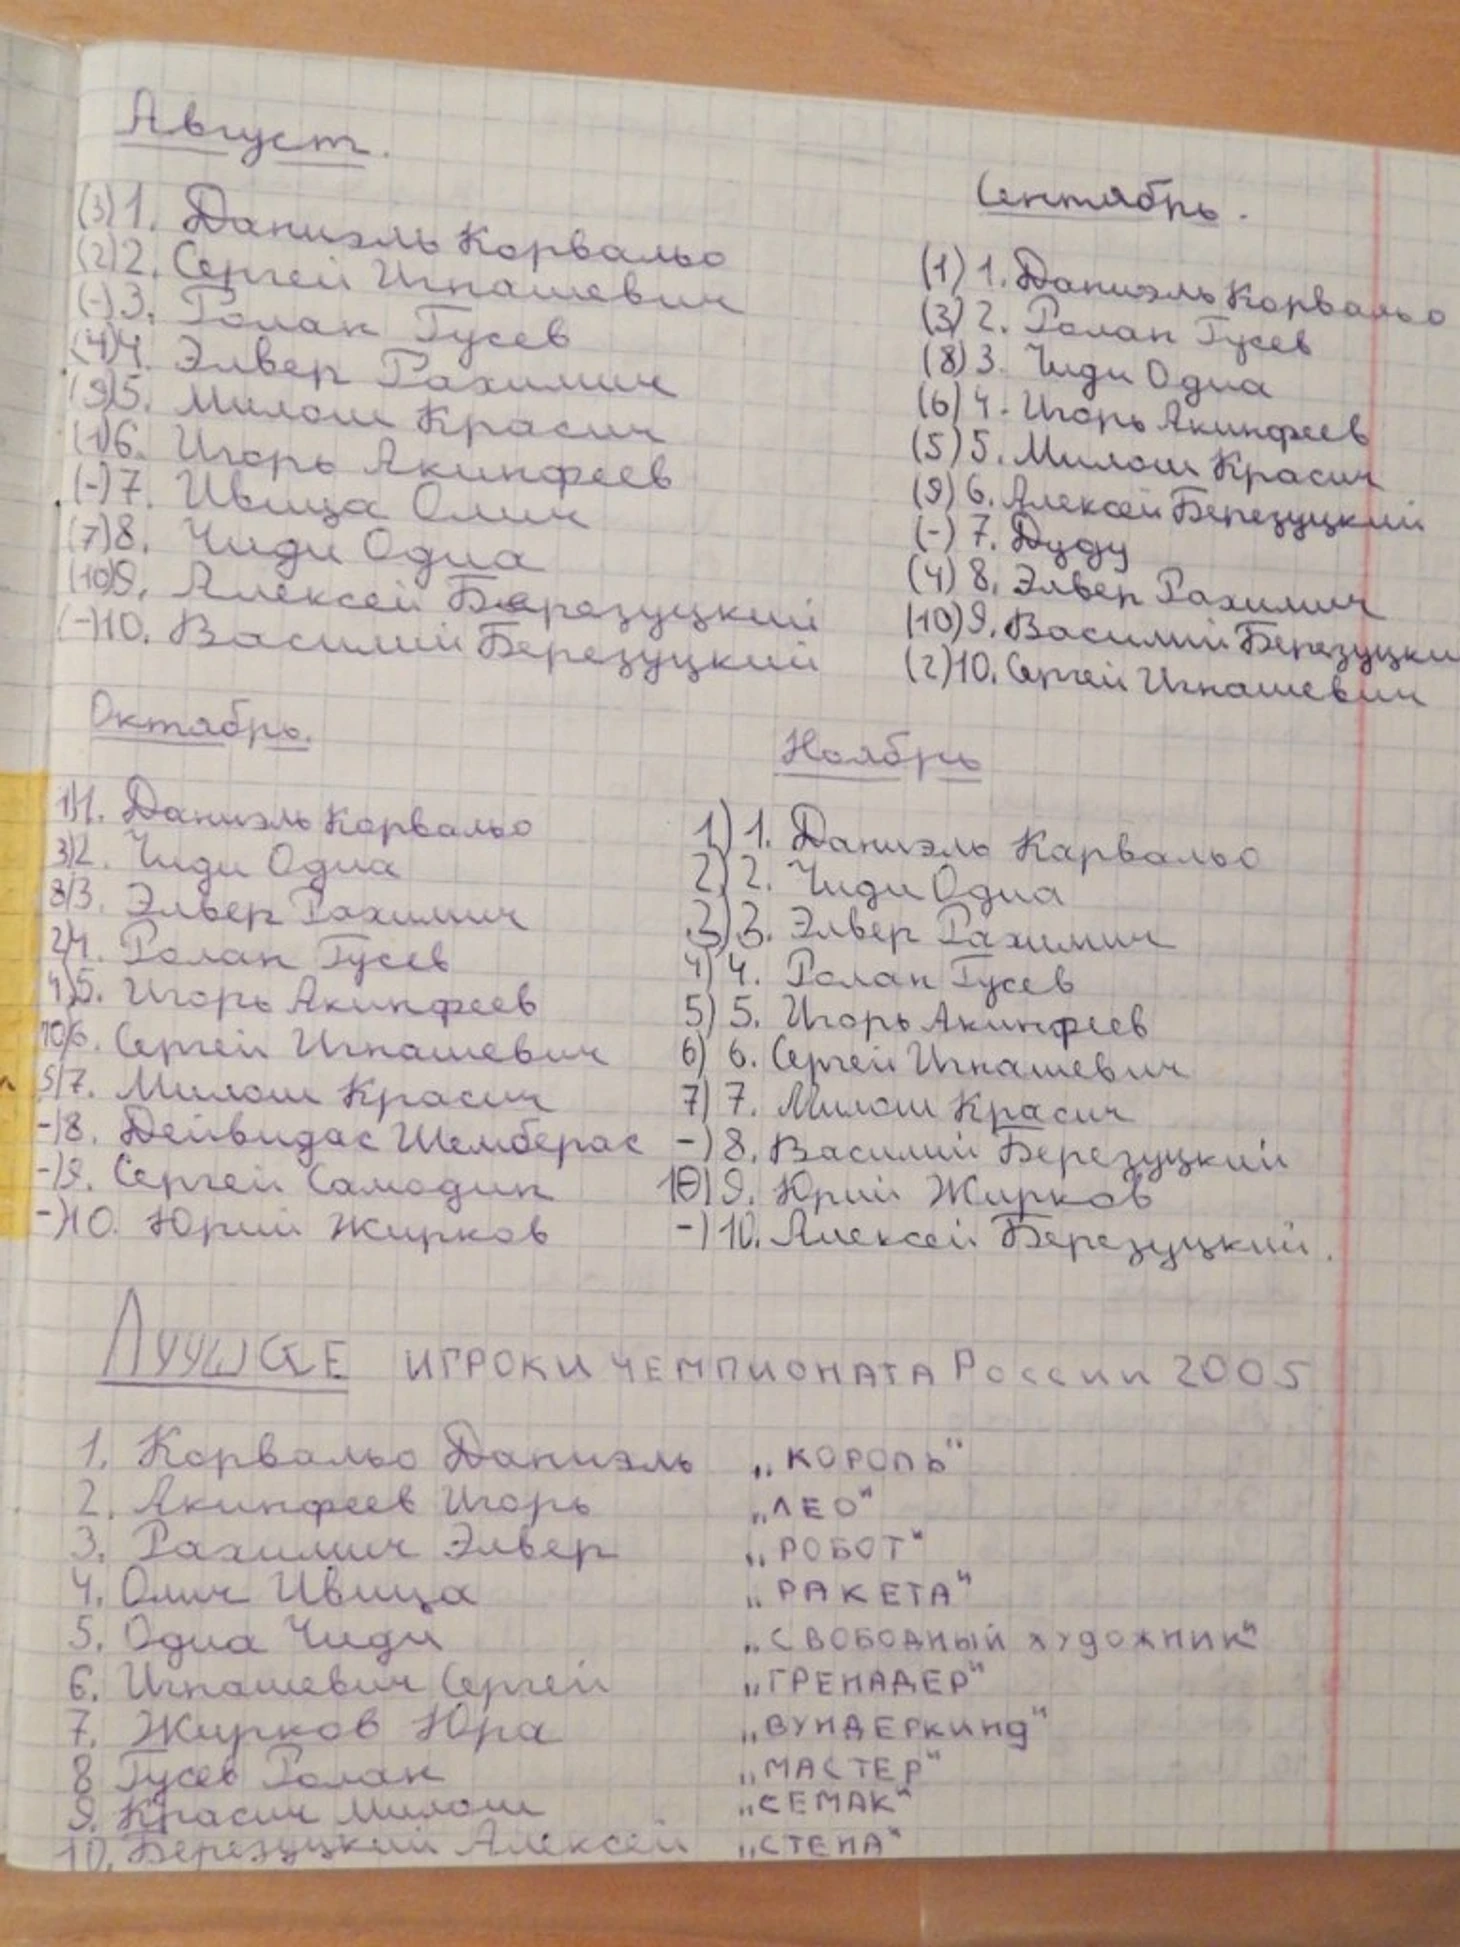 Август.
(3) 1. Даниэль Корвальо
(2) 2. Сергей Игнашевич
(-) 3. Ролан Гусев
(4) 4. Элвер Рахимич
(9) 5. Милош Красич
(1) 6. Игорь Акинфеев
(-) 7. Ивица Олич
(7) 8. Чиди Одиа
(10) 9. Алексей Березуцкий
(-) 10. Василий Березуцкий
Сентябрь.
(1) 1. Даниэль Корвальо
(3) 2. Ролан Гусев
(8) 3. Чиди Одиа
(6) 4. Игорь Акинфеев
(5) 5. Милош Красич
(9) 6. Алексей Березуцкий
(-) 7. Дуду
(4) 8. Элвер Рахимич
(10) 9. Василий Березуцки
(2) 10. Сергей Игнашевич
Октябрь.
1) 1. Даниэль Корвальо
3) 2. Чиди Одиа
8) 3. Элвер Рахимич
2) 4. Ролан Гусев
4) 5. Игорь Акинфеев
10) 6. Сергей Игнашевич
5) 7. Милош Красич
-) 8. Дейвидас Шемберас
-) 9. Сергей Самодин
-) 10. Юрий Жирков
Ноябрь
1) 1. Даниэль Карвальо
2) 2. Чиди Одиа
3) 3. Элвер Рахимич
4) 4. Ролан Гусев
5) 5. Игорь Акинфеев
6) 6. Сергей Игнашевич
7) 7. Милош Красич
-) 8. Василий Березуцкий
10) 9. Юрий Жирков
-) 10. Алексей Березуцкий.
Лучшие игроки чемпионата России 2005
1. Корвальо Даниэль „КОРОЛЬ"
2. Акинфеев Игорь „ЛЕО"
3. Рахимич Элвер „РОБОТ"
4. Олич Ивица „РАКЕТА"
5. Одиа Чиди „СВОБОДНЫЙ художник"
6. Игнашевич Сергей „ГРЕНАДЕР"
7. Жирков Юра „ВУНДЕРКИНД"
8 Гусев Ролан „МАСТЕР"
9. Красич Милош „СЕМАК"
10. Березуцкий Алексей „СТЕНА"